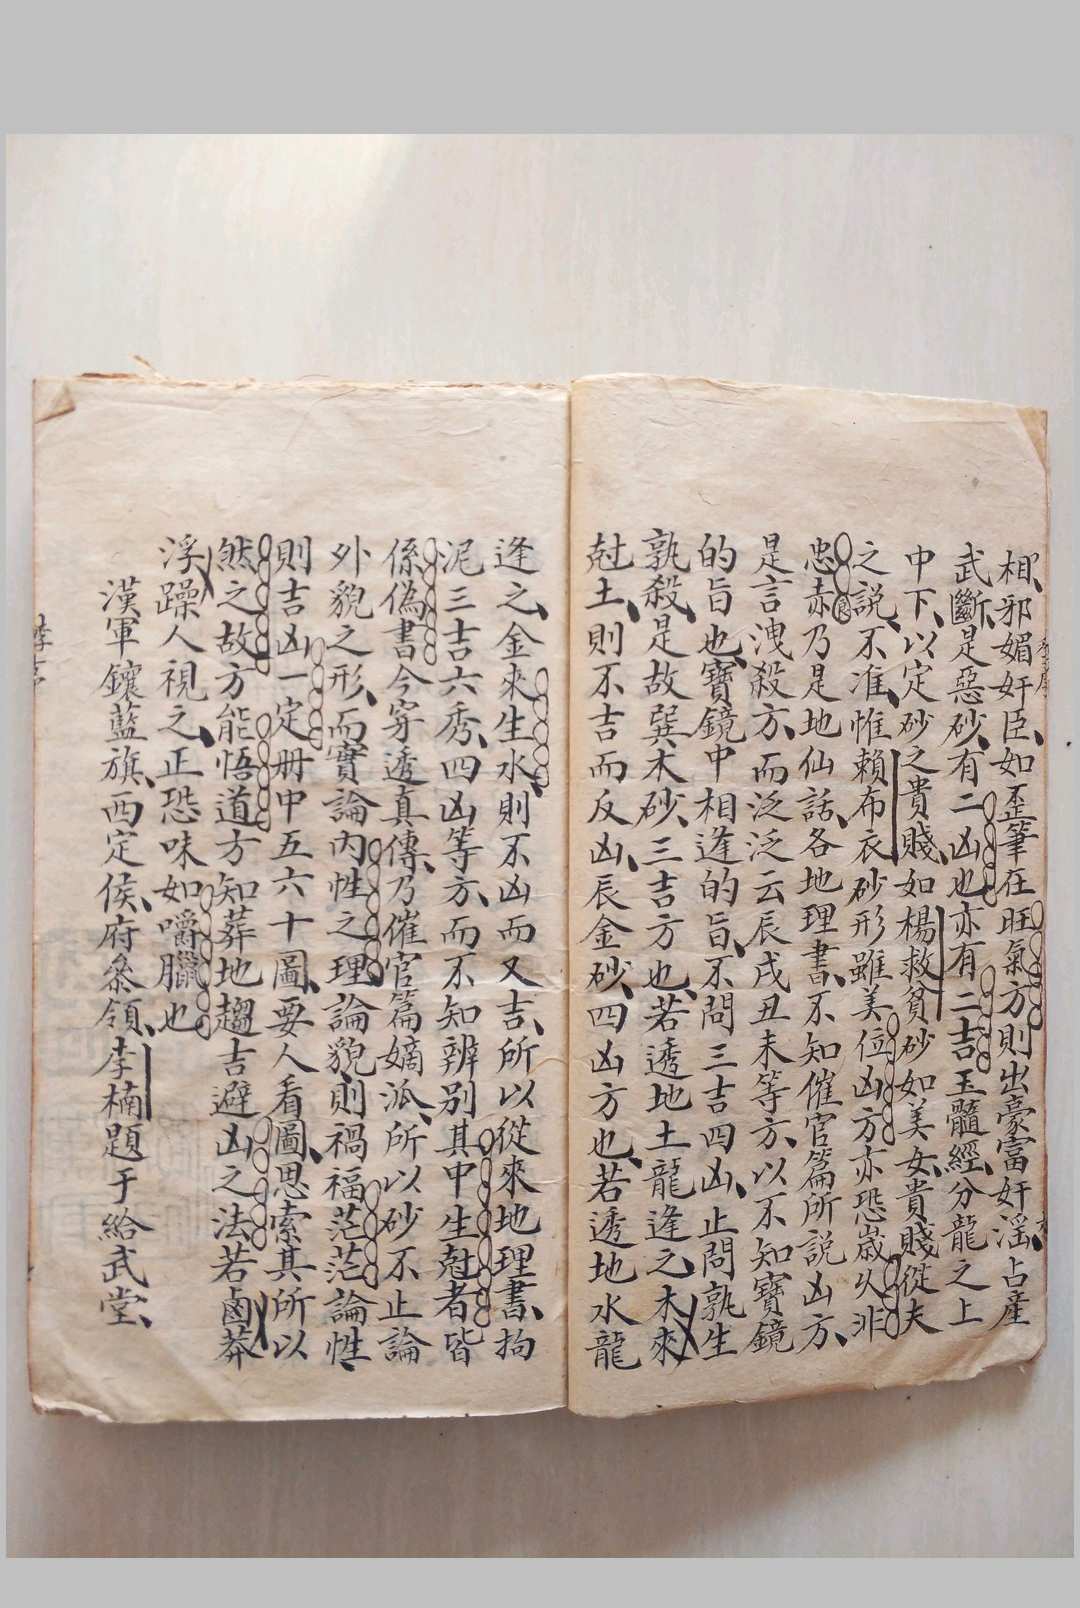 相邪媚奸臣如歪筆在旺氣方則出豪富奸滛占産
武斷是惡砂有二凶也亦有二吉玉髓經分龍之上
中下以定砂之貴賤如楊救貧砂如美女貴賤從夫
之說不准惟賴布衣砂形雖美位凶方亦恐嵗久非
忠赤乃是地仙話各地理書不知催官篇所說凶方
是言洩殺方而泛泛云辰戌丑未等方以不知寶鏡
的旨也寶鏡中相逢的旨不問三吉四凶止問孰生
孰殺是故巽木砂三吉方也若透地土龍逢之木來
尅土則不吉而反凶辰金砂四凶方也若透地水龍
逢之金來生水則不凶而又吉所以從來地理書拘
泥三吉六秀四凶等方而不知辨别其中生尅者皆
係偽書今穿透真傳乃催官篇嫡派所以砂不止論
外貌之形而實論内性之理論貌則禍福茫茫論性
則吉凶一定册中五六十圖要人看圖思索其所以
然之故方能悟道方知葬地趨吉避凶之法若鹵莽
浮躁人視之正恐味如嚼臘也
漢軍鑲藍旗西定侯府叅領李楠題于給武堂